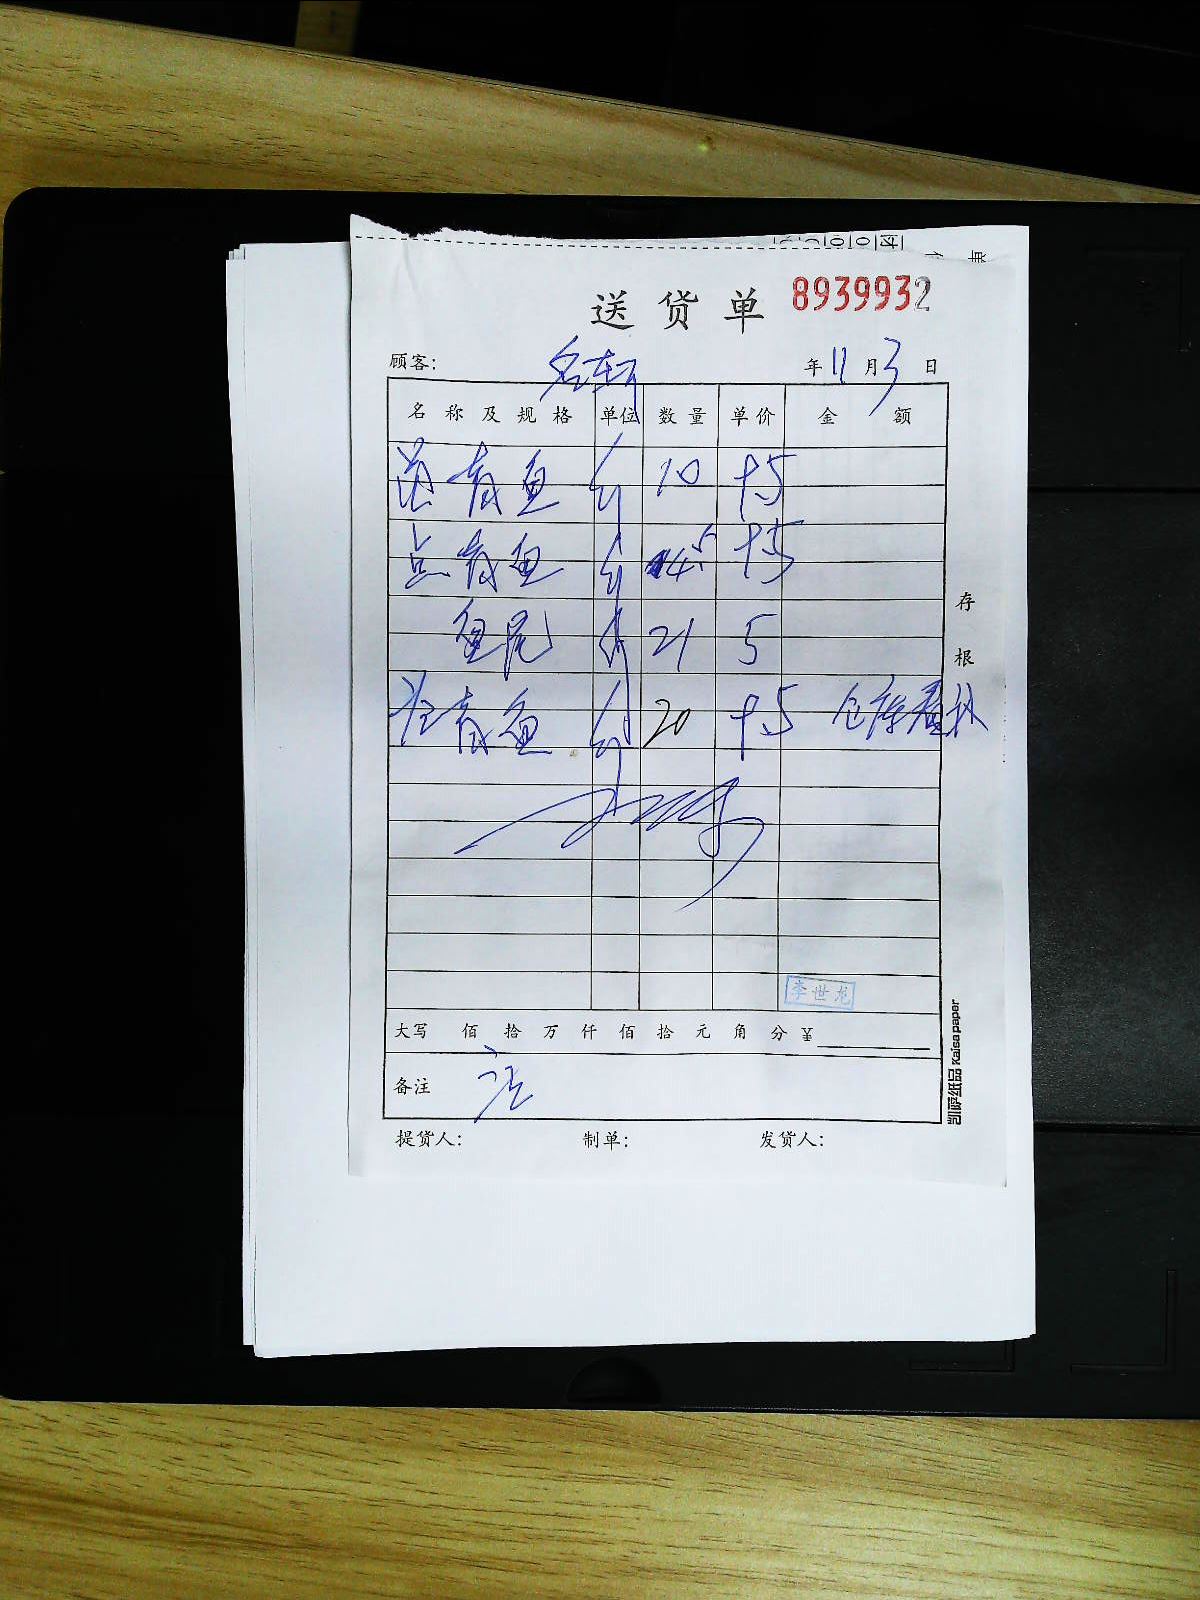 送货单 8939932
顾客: 名轩 年 11 月 3 日
名称及规格 单位 数量 单价 金额
青鱼 斤 10 7.5
点青鱼 斤 45 7.5
鱼尾 斤 21 5
青鱼 斤 20 7.5 仓库
存根
李世龙
大写 佰 拾 万 仟 佰 拾 元 角 分 ¥
备注
提货人: 制单: 发货人:
凯萨纸品 Kaisa paper